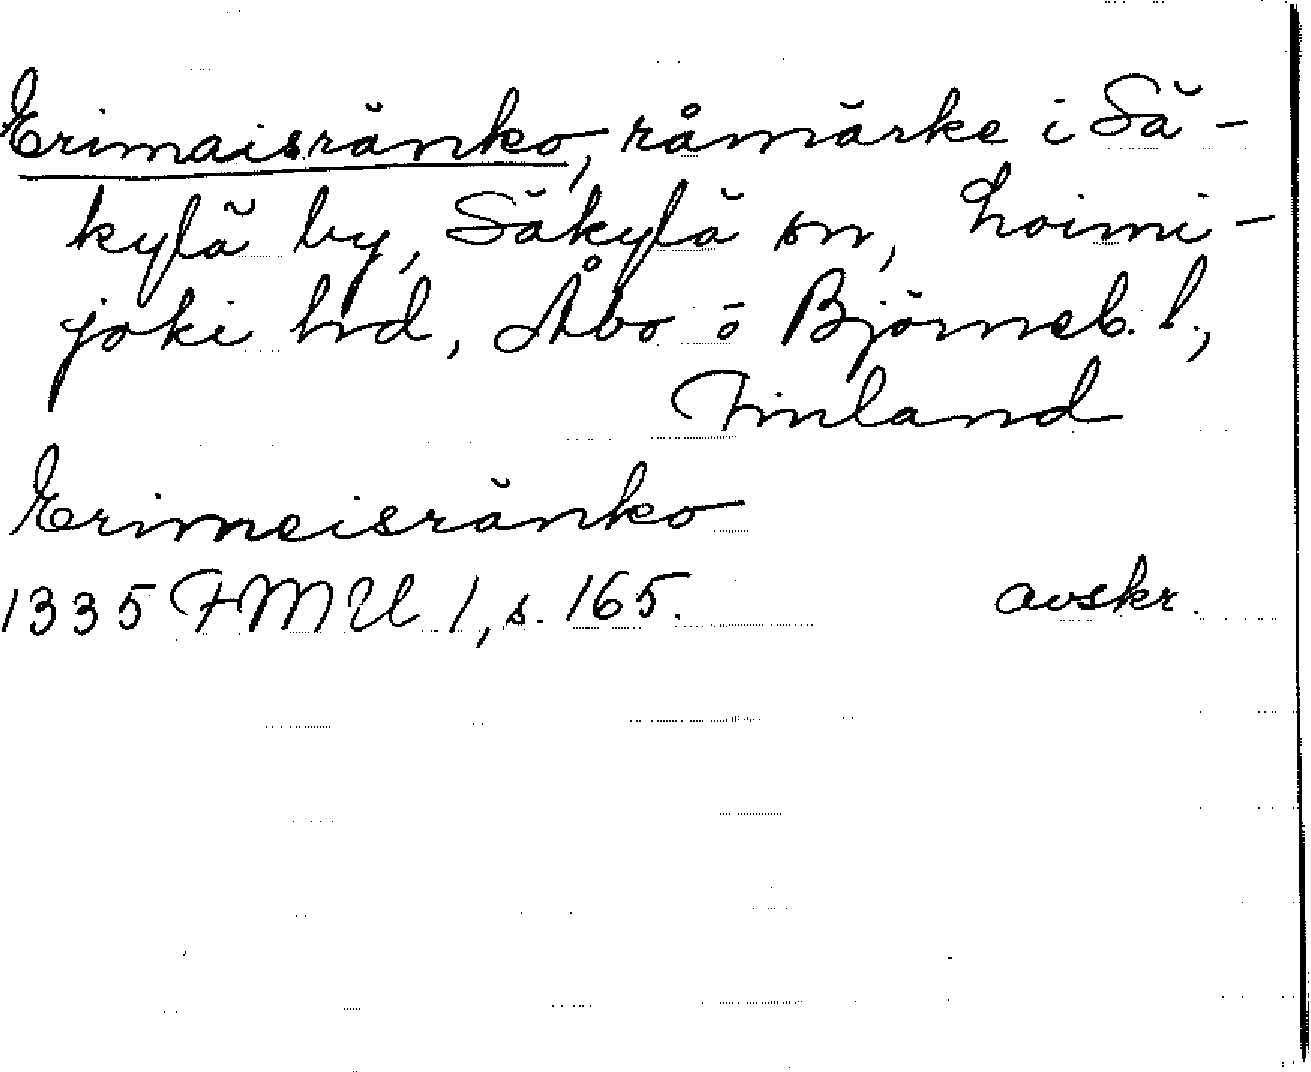 Erimaisränko, råmärke i Sä-
kylä by, Säkylä sn, Loimi-
joki hd, Åbo o Björneb. l.,
Finland
Erimeisränko
1335 FMU 1, s. 165. avskr.